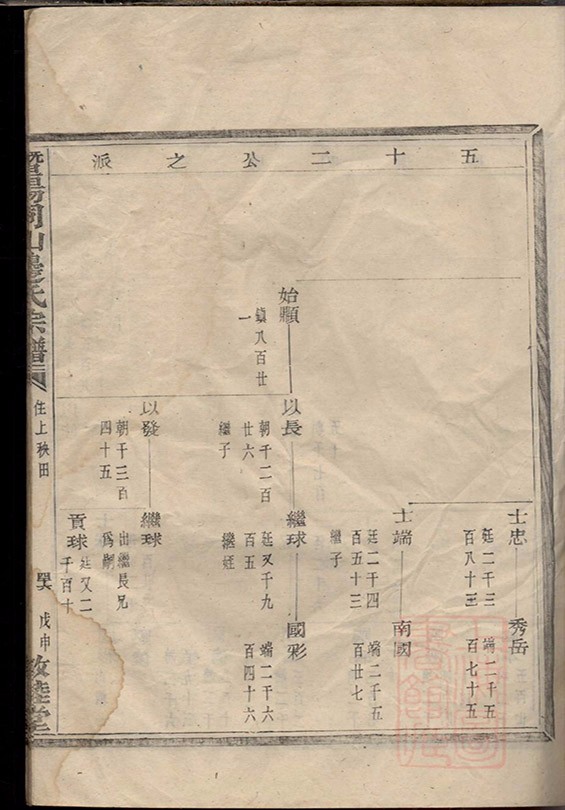 五十二公之派
士忠
廷二千三
百八十三
秀岳
端二千五
百七十五
士端
廷二千四
百五十三
繼子
南國
端二千五
百廿七
始顯
鎮八百廿
一
以長
朝千二百
廿六
繼子
繼球
廷又千九
百五
繼姪
國彩
端二千六
百四十六
以發
朝千三百
四十五
繼球
出繼長兄
爲嗣
貢球
廷又二
千百十
暨陽同山邊氏宗譜
住上秧田
巽
戊申
敦睦堂